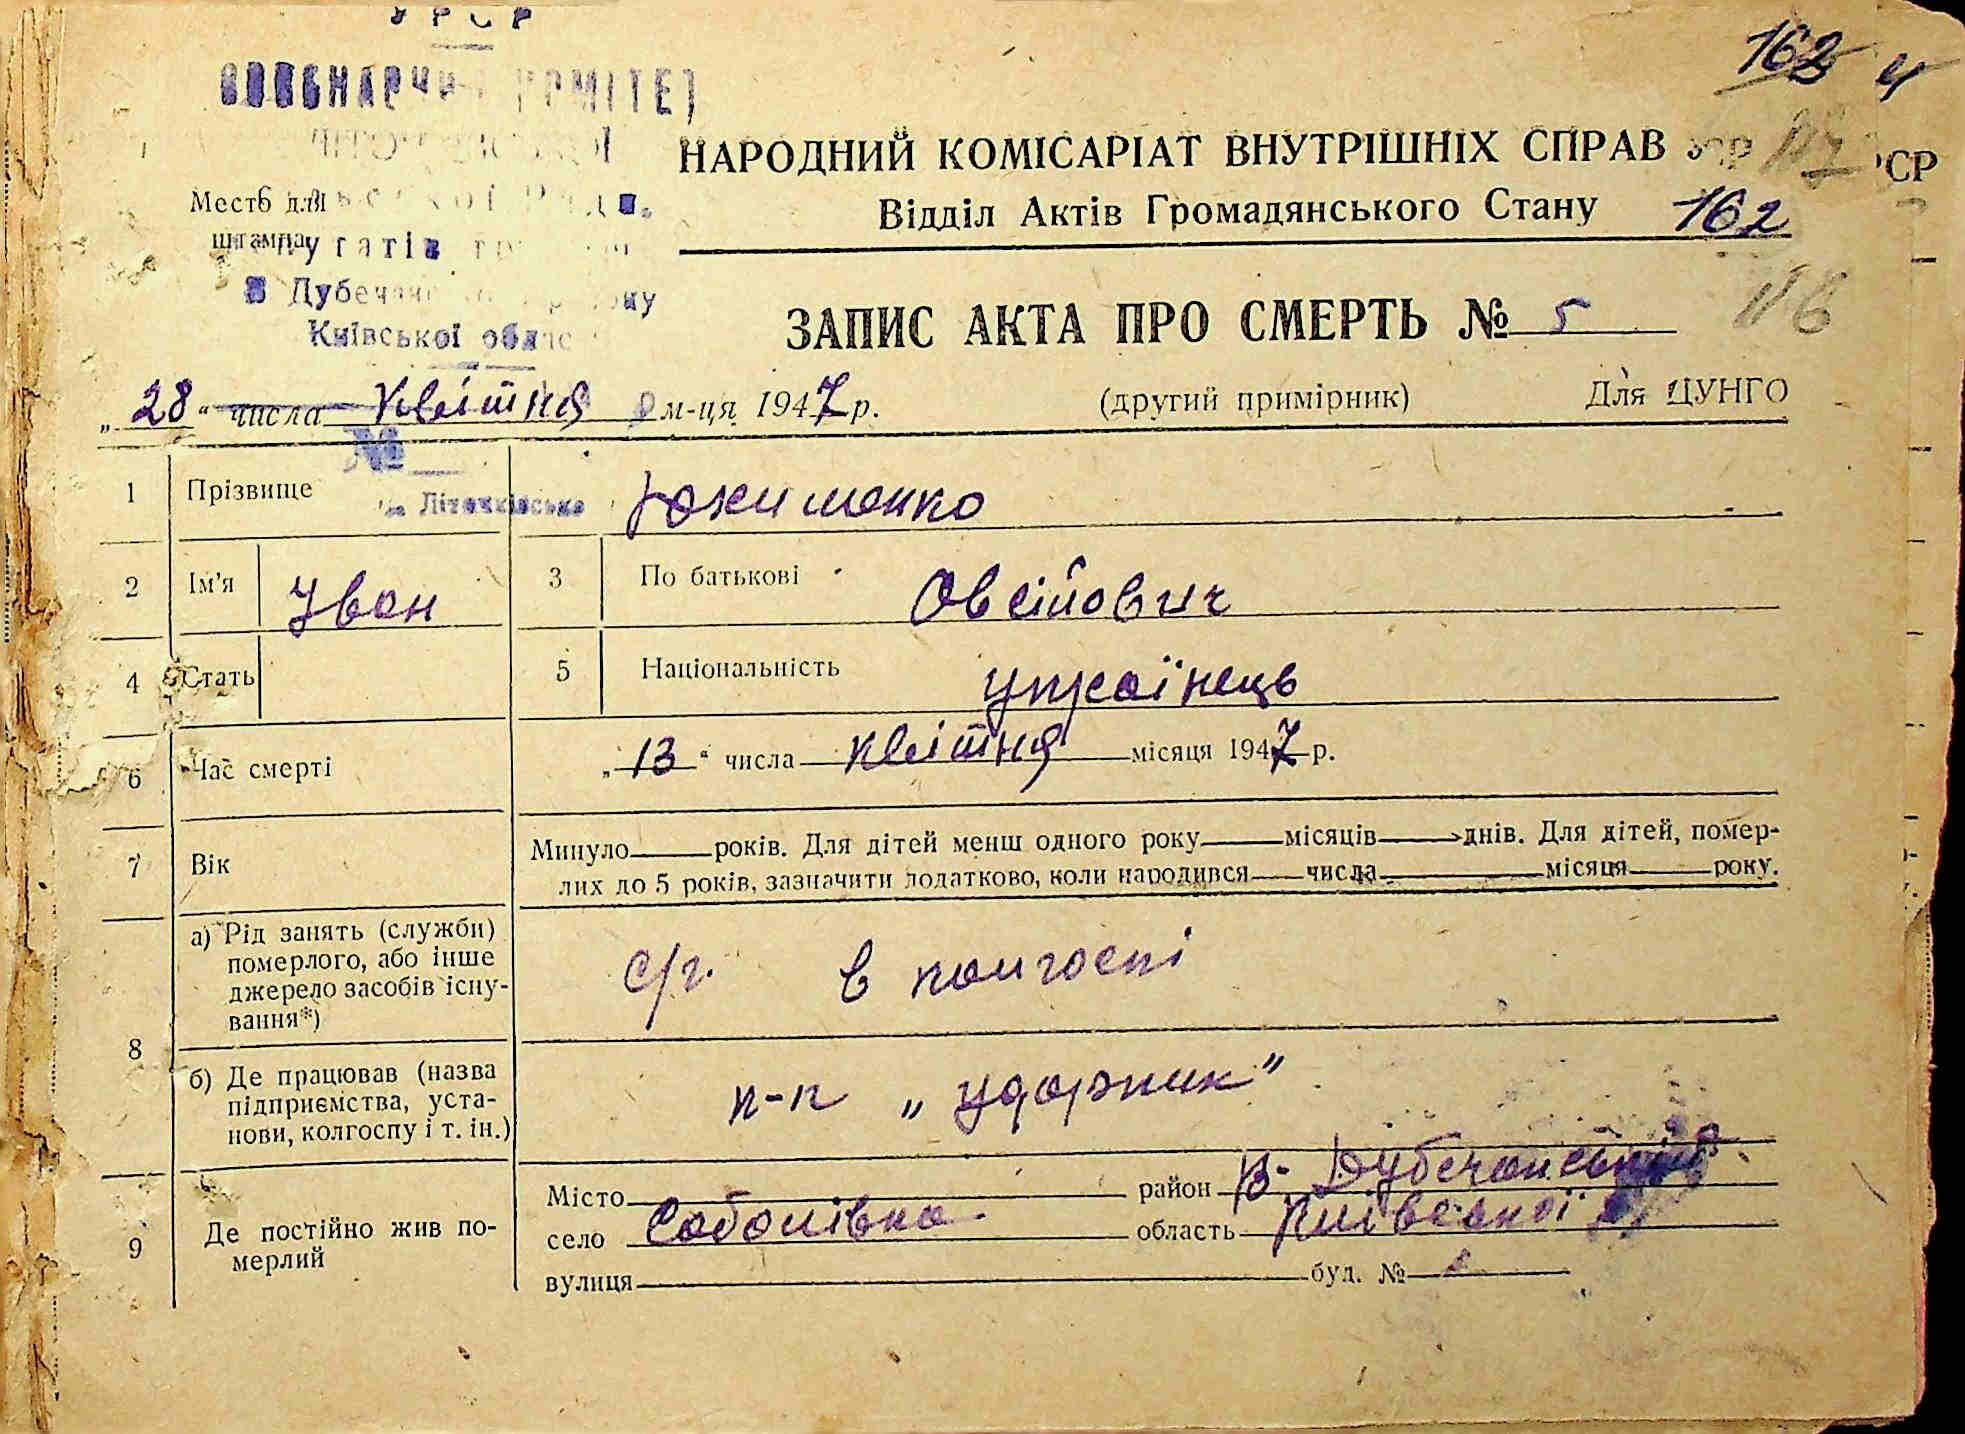 УРСР
162 4
НАРОДНИЙ КОМІСАРІАТ ВНУТРІШНІХ СПРАВ
Відділ Актів Громадянського Стану 162
Место для
штампа
Київської
ЗАПИС АКТА ПРО СМЕРТЬ № 5
116
„28“ числа квітня м-ця 1947 р. (другий примірник) Для ЦУНГО
№
1 Прізвище Юхименко
2 Ім'я Іван 3 По батькові Овсійович
4 Стать 5 Національність українець
6 Час смерті „13“ числа квітня місяця 1947 р.
7 Вік Минуло років. Для дітей менш одного року місяців днів. Для дітей, помер-
лих до 5 років, зазначити додатково, коли народився числа місяця року.
8 а) Рід занять (служби)
померлого, або інше
джерело засобів існу-
вання*)
с/г. в колгоспі
б) Де працював (назва
підприємства, уста-
нови, колгоспу і т. ін.)
к-п „ударник”
9 Де постійно жив по-
мерлий
Місто район В-Дубечанський
село Соболівка область Київської
вулиця буд. №